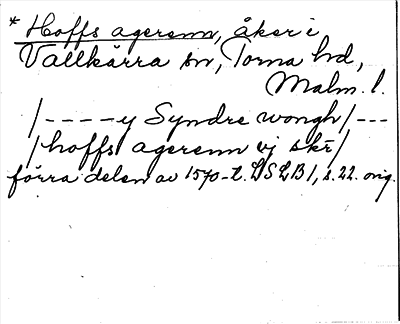 * Hoffs agerenn, åker i
Vallkärra sn, Torna hd,
Malm. l.
/----y Syndre wongh/---
/hoffs agerenn vj skr̄/
förra delen av 1570-t. LSLB 1, s. 22. orig.